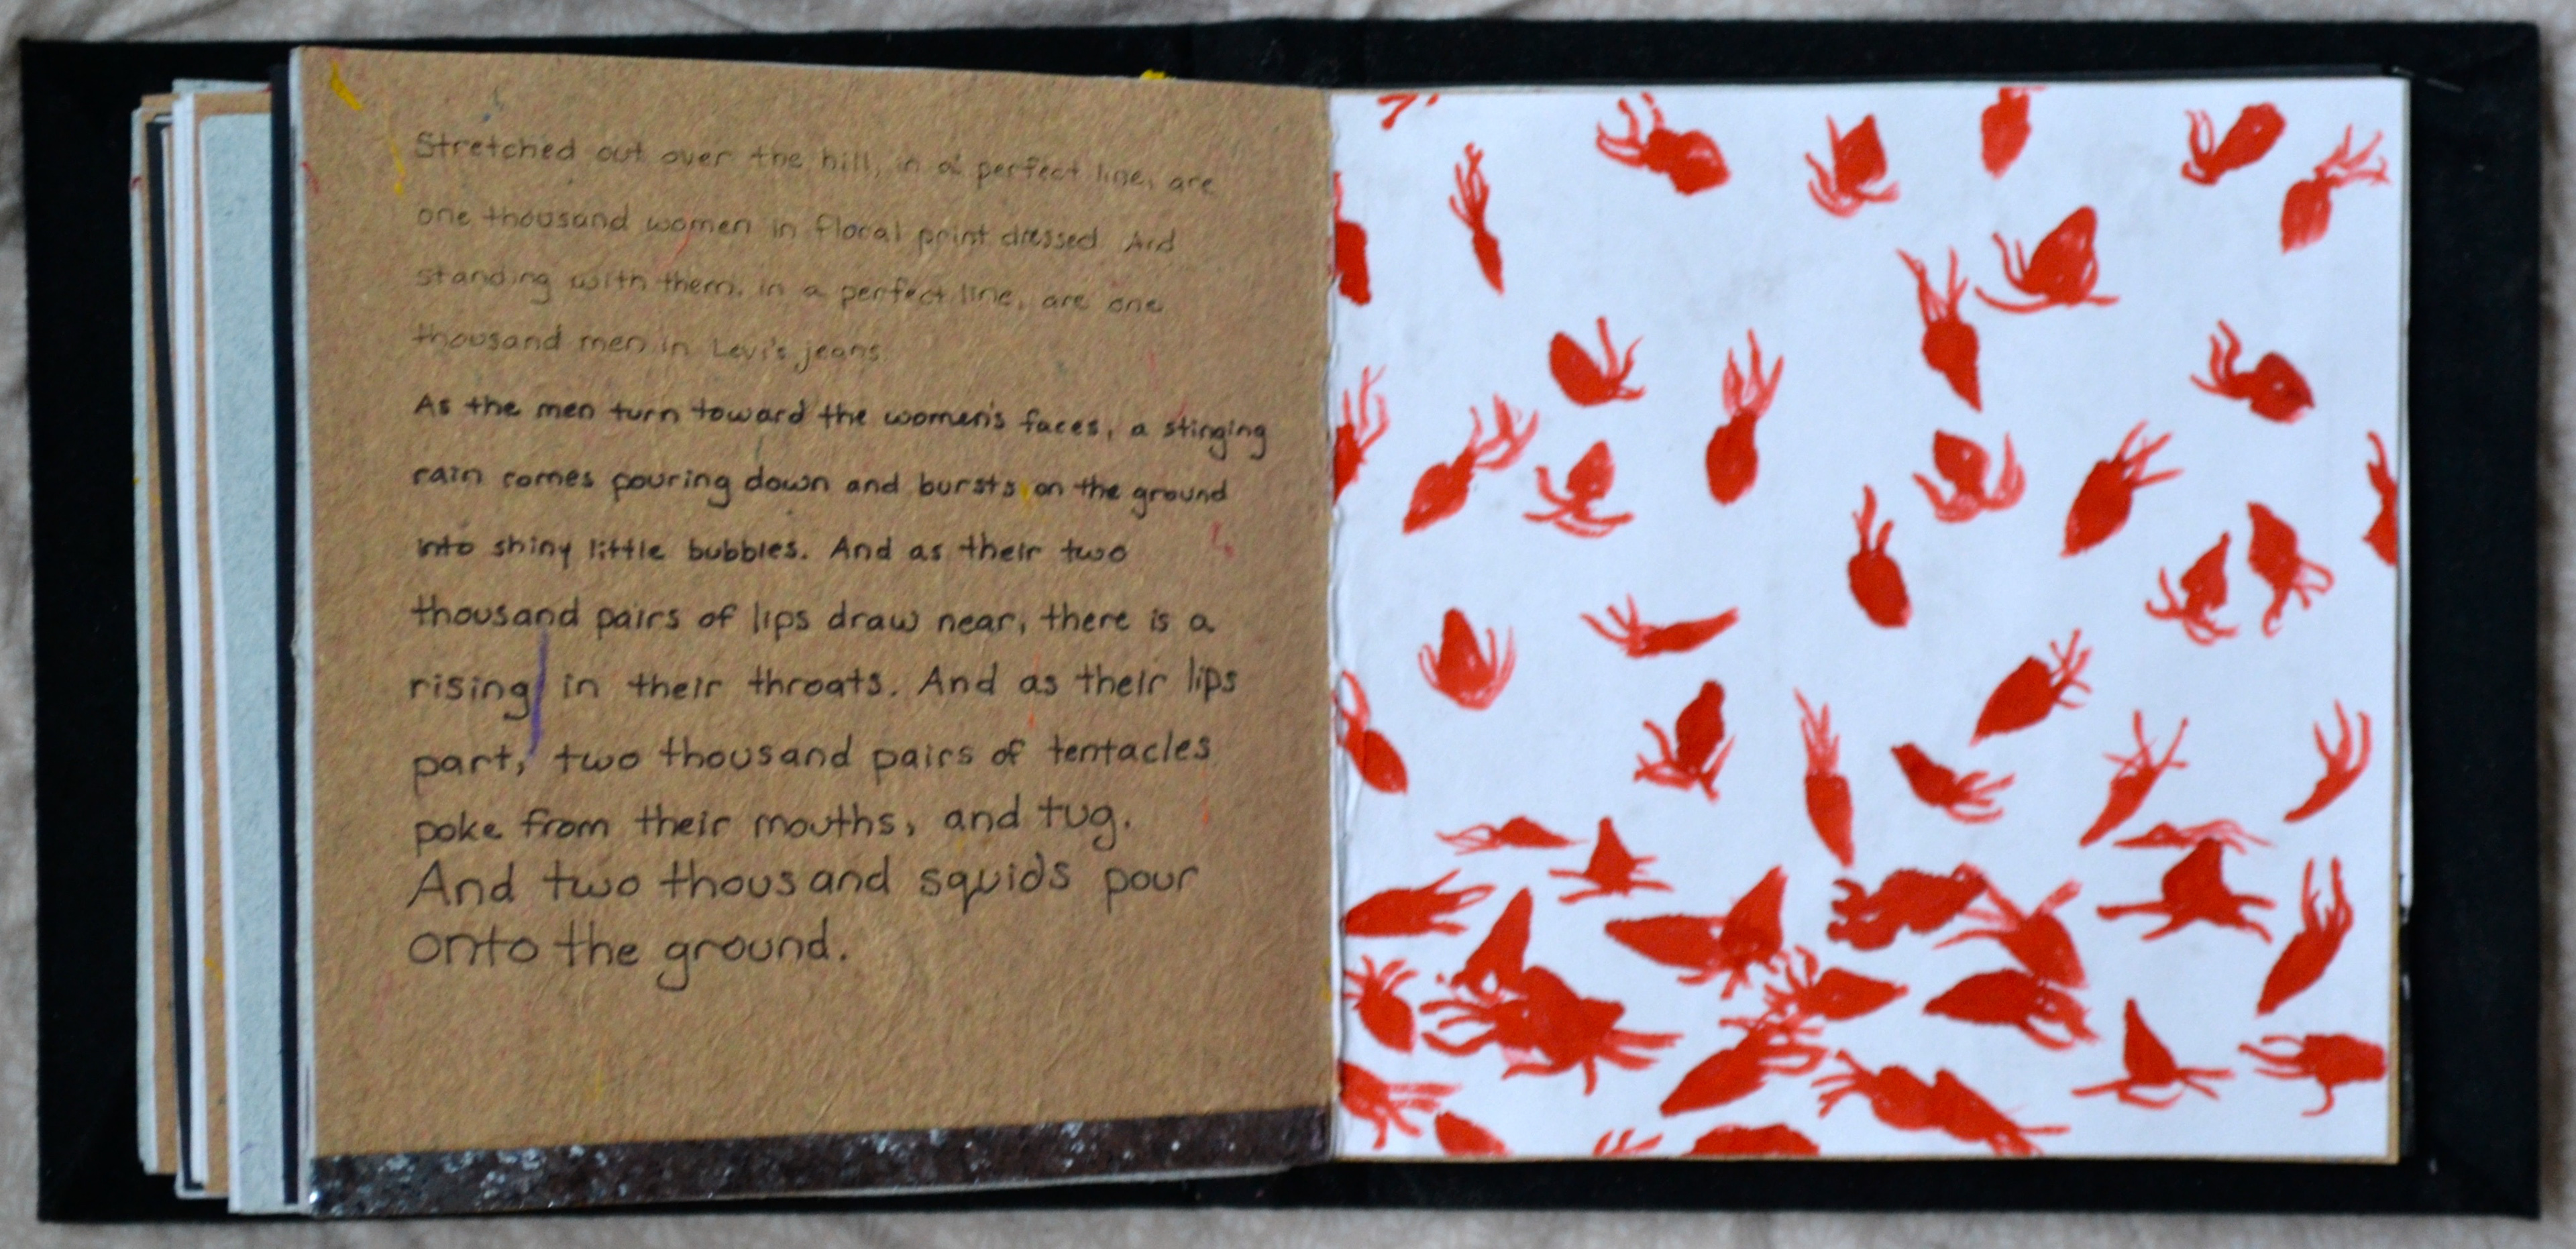 Stretched out over the hill, in a perfect line, are
one thousand women in floral print dressed. And
standing with them, in a perfect line, are one
thousand men in Levi's jeans.
As the men turn toward the women's faces, a stinging
rain comes pouring down and bursts on the ground
into shiny little bubbles. And as their two
thousand pairs of lips draw near, there is a
rising in their throats. And as their lips
part, two thousand pairs of tentacles
poke from their mouths, and tug.
And two thousand squids pour
onto the ground.